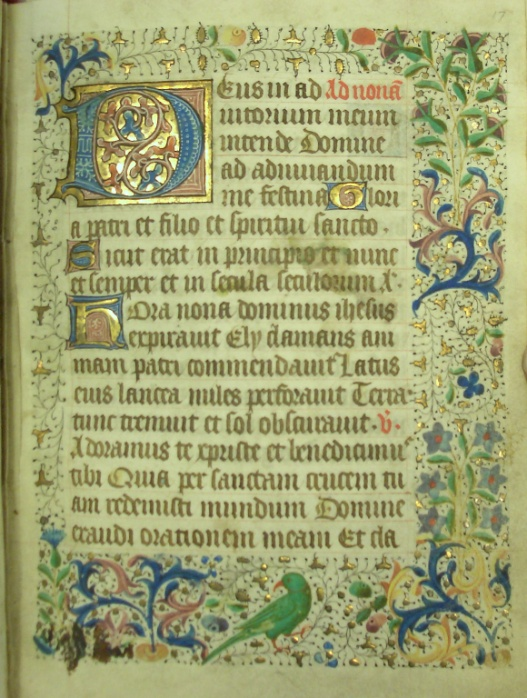 Deus in ad Ad nonã
iutorium meum
intende Domine
ad adiuuandum
me festina Glori
a patri et filio et spiritui sancto.
Sicut erat in principio et nunc
et semper et in secula seculorum A.
Hora nona dominus ihesus
expirauit Ely clamans ani
mam patri commendauit Latus
eius lancea miles perforauit Terra
tunc tremuit et sol obscurauit. V.
Adoramus te xpriste et benedicimus
tibi Quia per sanctam crucem tu
am redemisti mundum Domine
exaudi orationem meam Et cla